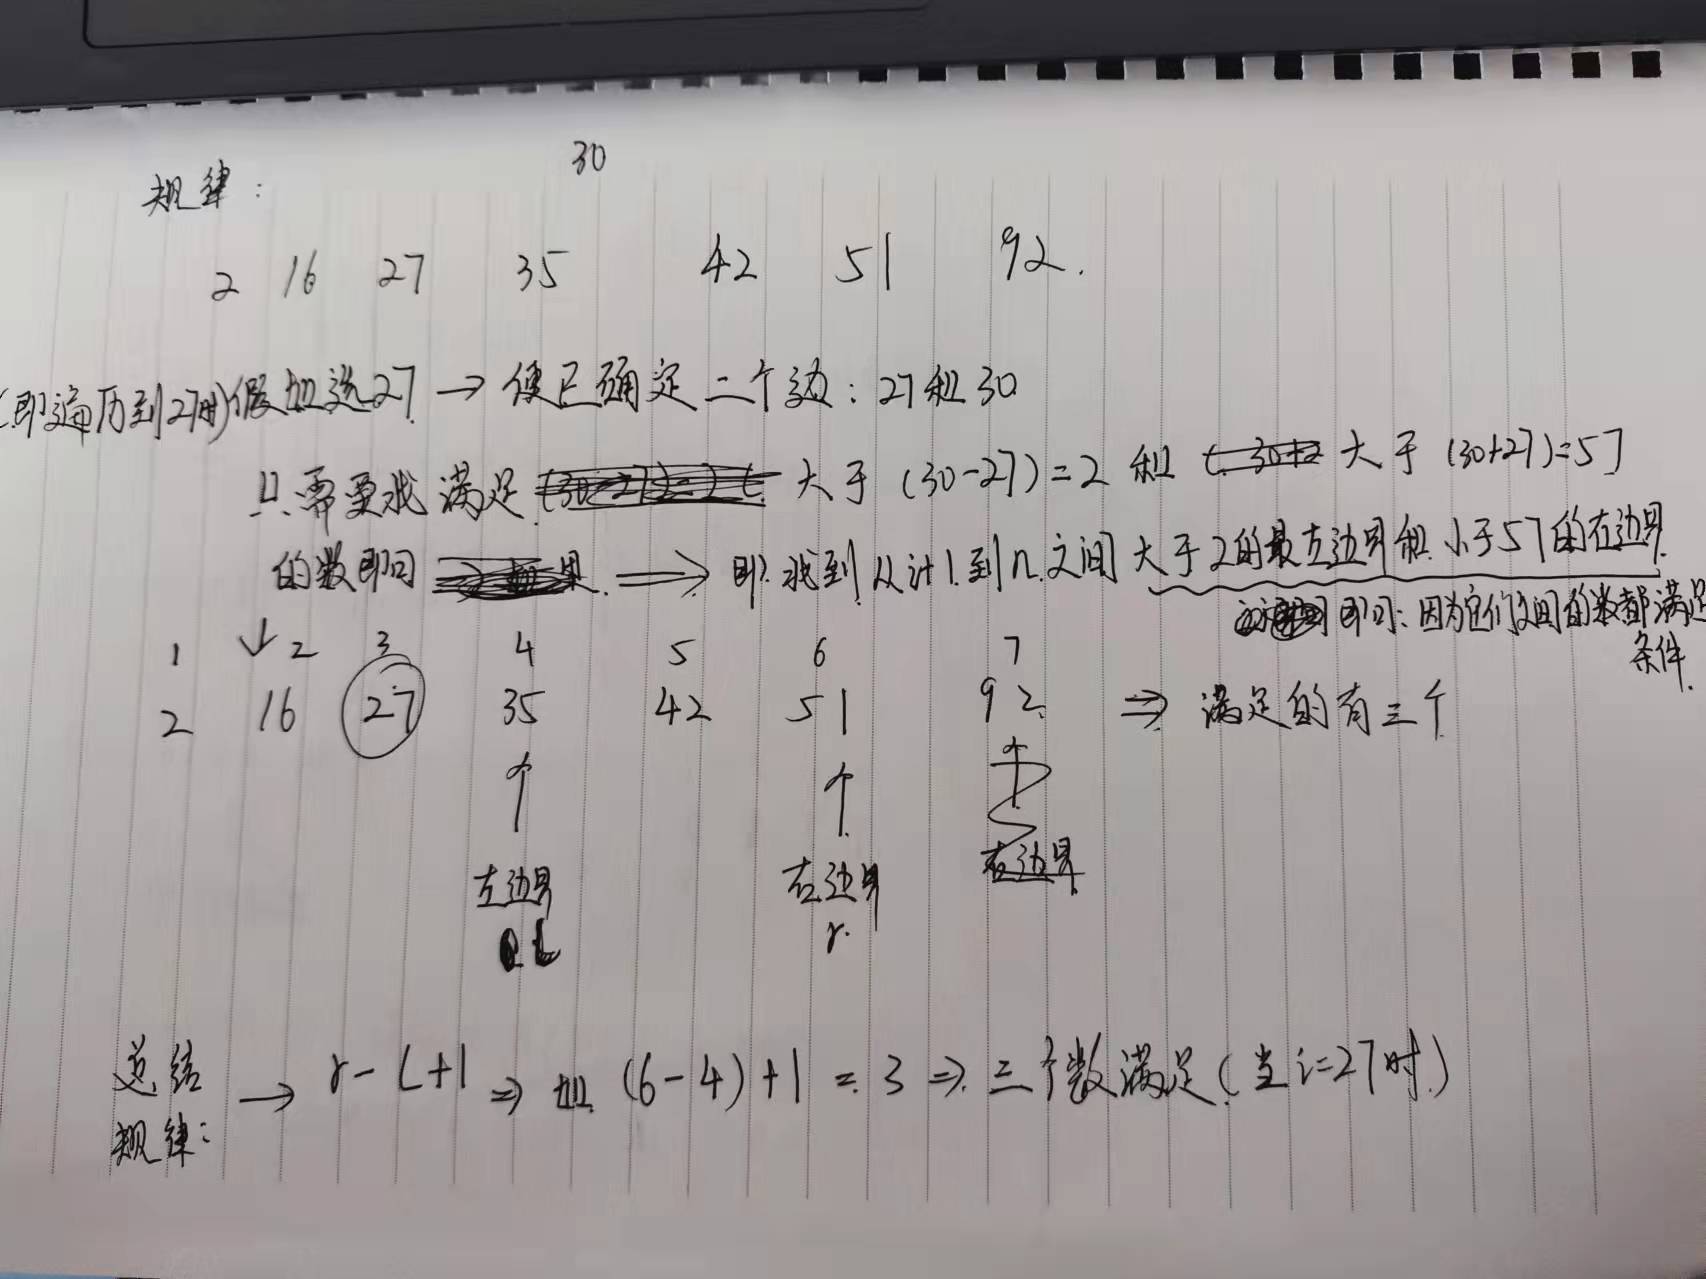 30
规律：
2 16 27 35 42 51 92.
(即遍历到27时)假如选27 → 便已确定二个边：27和30
只需要找满足 大于 (30-27)=2 和 大于 (30+27)=57
的数即可 ⟹ 即找到从i+1到n之间大于2的最左边界和小于57的右边界
即可：因为它们之间的数都满足
条件.
1 ↓ 2 3 4 5 6 7
2 16 27 35 42 51 92 ⇒ 满足的有三个
↑ ↑ ↑
左边界 右边界 右边界
L r.
总结 → r-L+1 ⇒ 如 (6-4)+1=3 ⇒ 三个数满足(当i=27时)
规律：